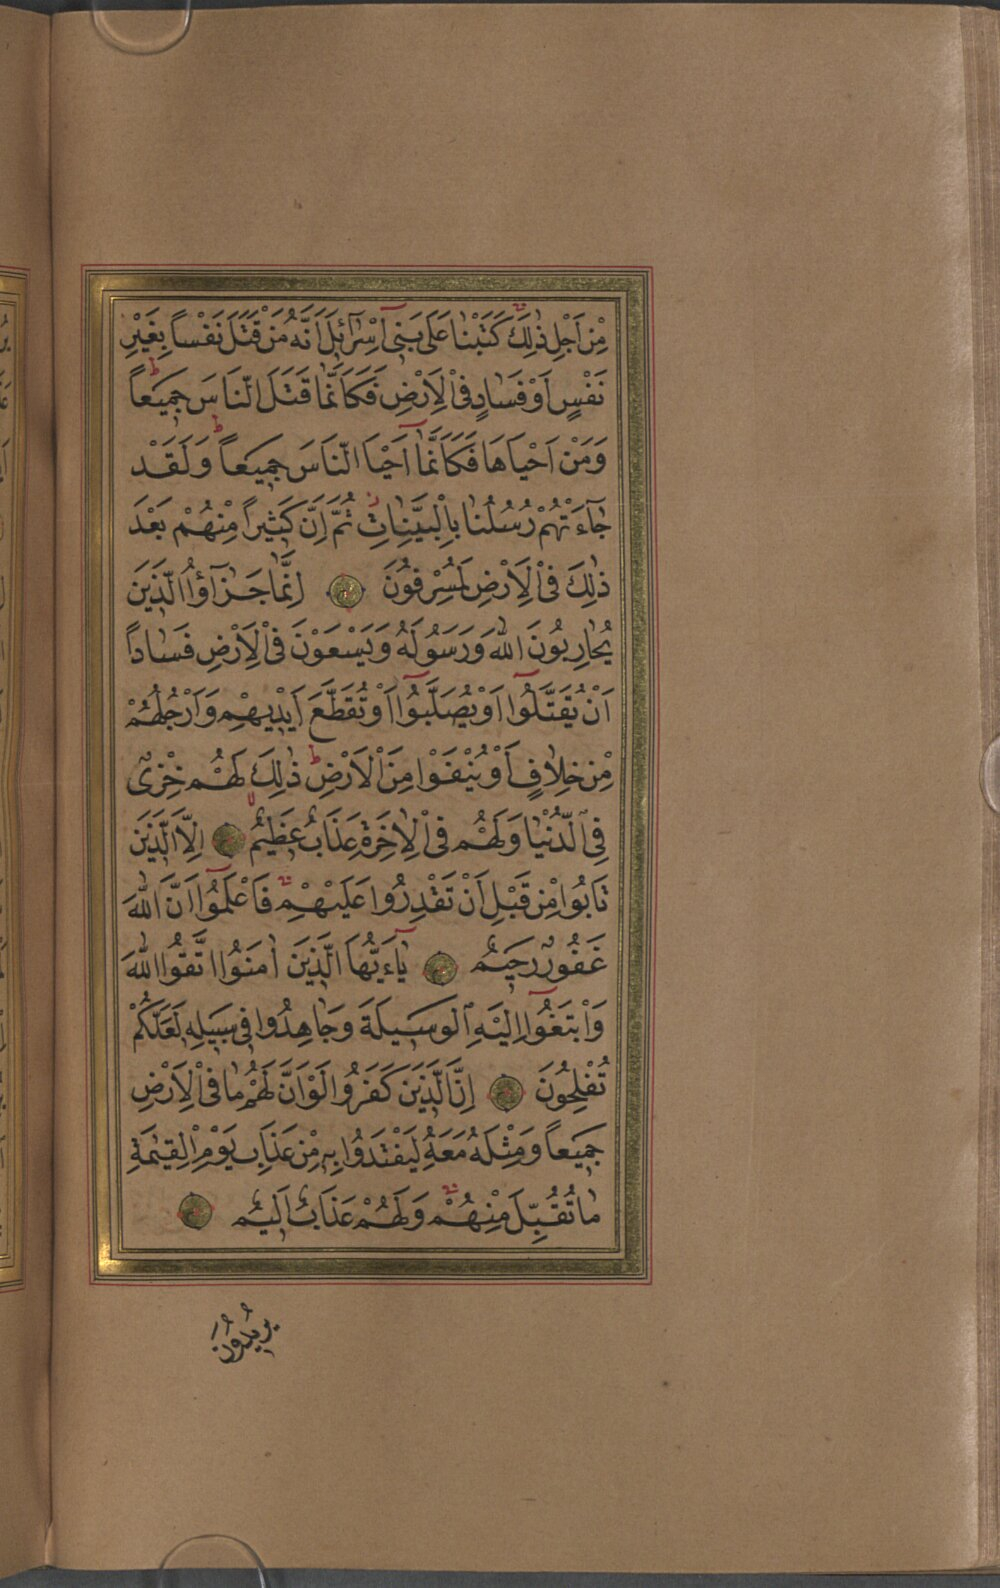 مِنْ اَجْلِ ذٰلِكَ كَتَبْنَا عَلٰى بَنٖٓى اِسْرَٓائٖلَ اَنَّهُ مَنْ قَتَلَ نَفْساً بِغَيْرِ
نَفْسٍ اَوْ فَسَادٍ فِى الْاَرْضِ فَكَاَنَّمَا قَتَلَ النَّاسَ جَمٖيعاً
وَمَنْ اَحْيَاهَا فَكَاَنَّمَٓا اَحْيَا النَّاسَ جَمٖيعاً وَلَقَدْ
جَٓاءَتْهُمْ رُسُلُنَا بِالْبَيِّنَاتِ ثُمَّ اِنَّ كَثٖيراً مِنْهُمْ بَعْدَ
ذٰلِكَ فِى الْاَرْضِ لَمُسْرِفُونَ اِنَّمَا جَزَٓاؤُا الَّذٖينَ
يُحَارِبُونَ اللّٰهَ وَرَسُولَهُ وَيَسْعَوْنَ فِى الْاَرْضِ فَسَاداً
اَنْ يُقَتَّلُٓوا اَوْ يُصَلَّبُٓوا اَوْ تُقَطَّعَ اَيْدٖيهِمْ وَاَرْجُلُهُمْ
مِنْ خِلَافٍ اَوْ يُنْفَوْا مِنَ الْاَرْضِ ذٰلِكَ لَهُمْ خِزْىٌ
فِى الدُّنْيَا وَلَهُمْ فِى الْاٰخِرَةِ عَذَابٌ عَظٖيمٌ اِلَّا الَّذٖينَ
تَابُوا مِنْ قَبْلِ اَنْ تَقْدِرُوا عَلَيْهِمْ فَاعْلَمُٓوا اَنَّ اللّٰهَ
غَفُورٌ رَحٖيمٌ يَٓا اَيُّهَا الَّذٖينَ اٰمَنُوا اتَّقُوا اللّٰهَ
وَابْتَغُٓوا اِلَيْهِ الْوَسٖيلَةَ وَجَاهِدُوا فٖى سَبٖيلِهٖ لَعَلَّكُمْ
تُفْلِحُونَ اِنَّ الَّذٖينَ كَفَرُوا لَوْ اَنَّ لَهُمْ مَا فِى الْاَرْضِ
جَمٖيعاً وَمِثْلَهُ مَعَهُ لِيَفْتَدُوا بِهٖ مِنْ عَذَابِ يَوْمِ الْقِيٰمَةِ
مَا تُقُبِّلَ مِنْهُمْ وَلَهُمْ عَذَابٌ اَلٖيمٌ
يُرٖيدُونَ